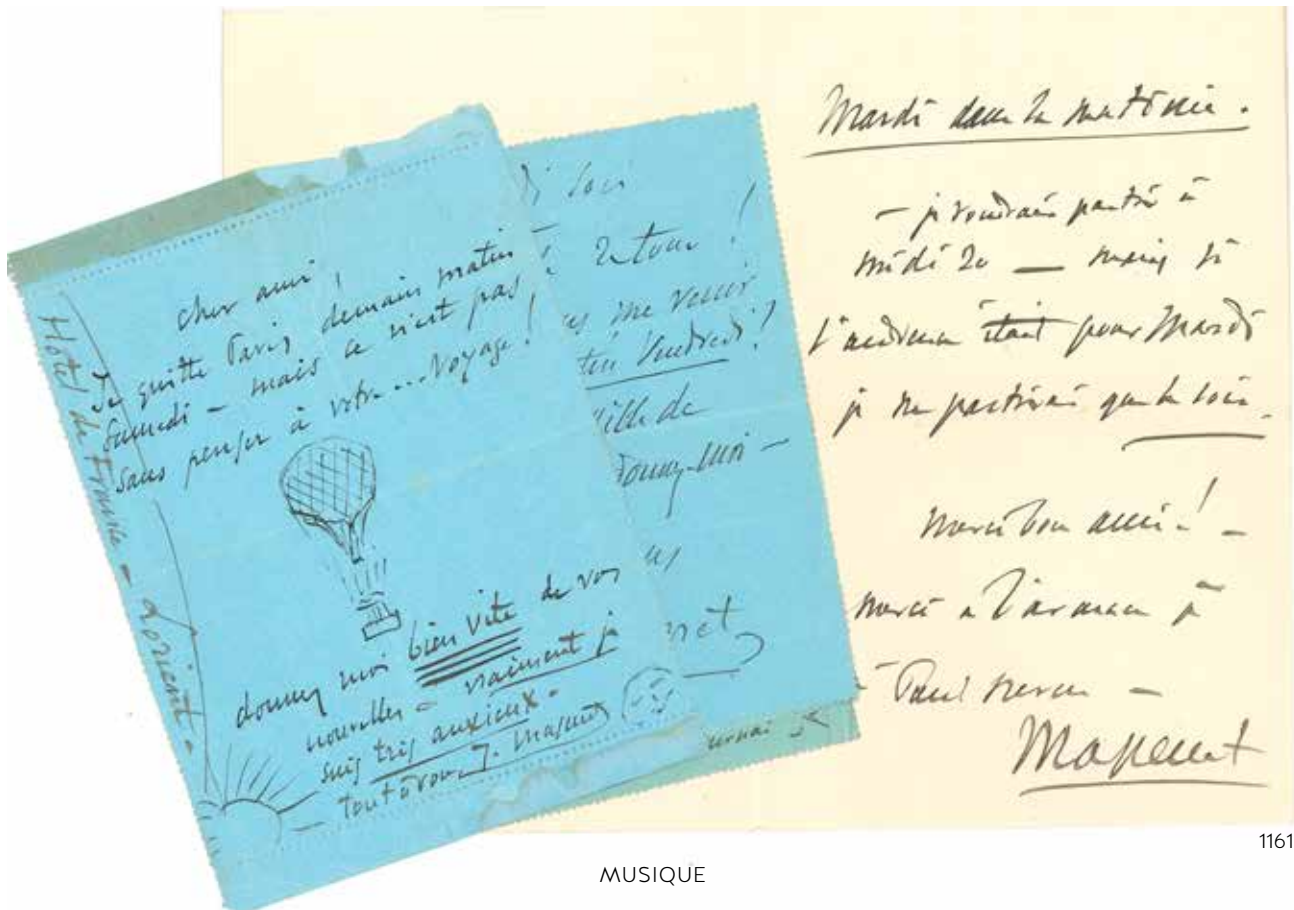 cher ami !
Je quitte Paris demain matin
Samedi – mais ce n'est pas
sans penser à votre ... voyage !
donnez moi bien vite de vos
nouvelles – vraiment je
suis très anxieux –
tout à vous J. Massenet
Hôtel de France – Lorient –
di soir
retour !
me venir
Vendredi !
ville de
donnez-moi –
net
Mardi dans la matinée .
– je voudrais partir à
midi 20 — mais si
l'audience était pour Mardi
je ne partirai que le soir .
merci bon ami ! –
merci à l'avance à
Paul –
Massenet
1161
MUSIQUE